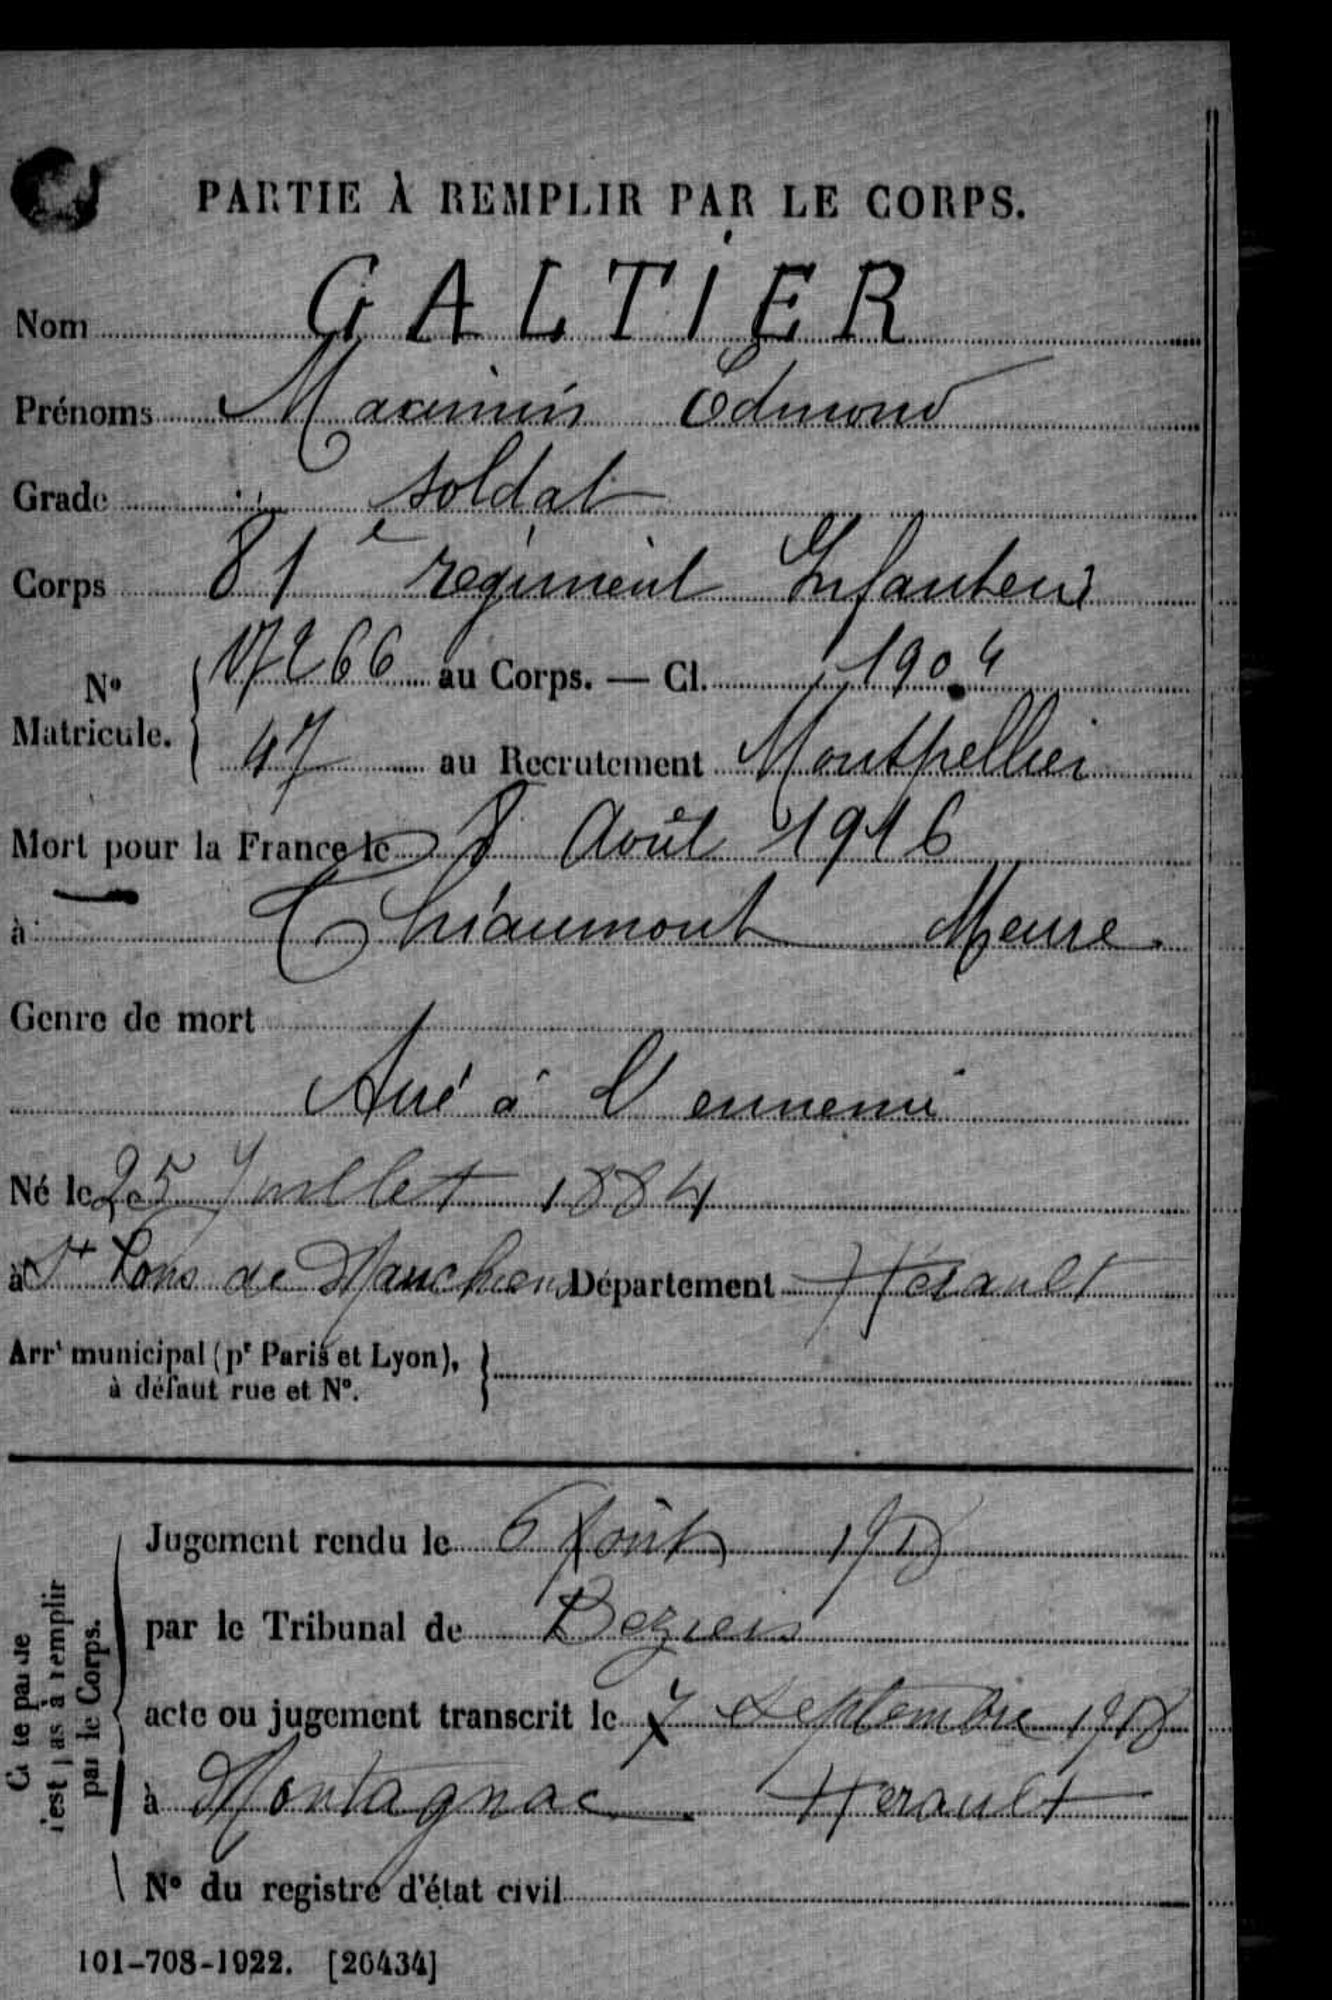 PARTIE À REMPLIR PAR LE CORPS.
Nom GALTIER
Prénoms Maximin Edmond
Grade soldat
Corps 81e régiment Infanterie
No Matricule. 17266 au Corps. — Cl. 1904
47 au Recrutement Montpellier
Mort pour la France le 8 Août 1916
à Thiaumont Meuse
Genre de mort
Tué à l'ennemi
Né le 25 Juillet 1884
à St Pons de Mauchiens Département Hérault
Arrt municipal (pr Paris et Lyon),
à défaut rue et No.
Cette partie
n'est pas à remplir
par le Corps.
Jugement rendu le 6 Août 1918
par le Tribunal de Beziers
acte ou jugement transcrit le 7 Septembre 1918
à Montagnac Hérault
No du registre d'état civil
101-708-1922. [26434]